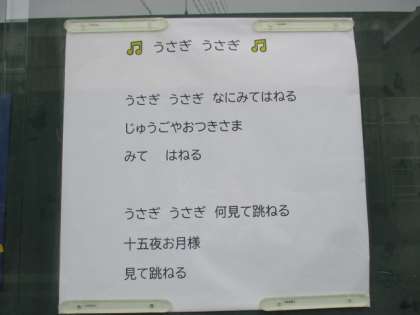 🎵 うさぎ うさぎ 🎵
うさぎ うさぎ なにみてはねる
じゅうごやおつきさま
みて はねる
うさぎ うさぎ 何見て跳ねる
十五夜お月様
見て跳ねる